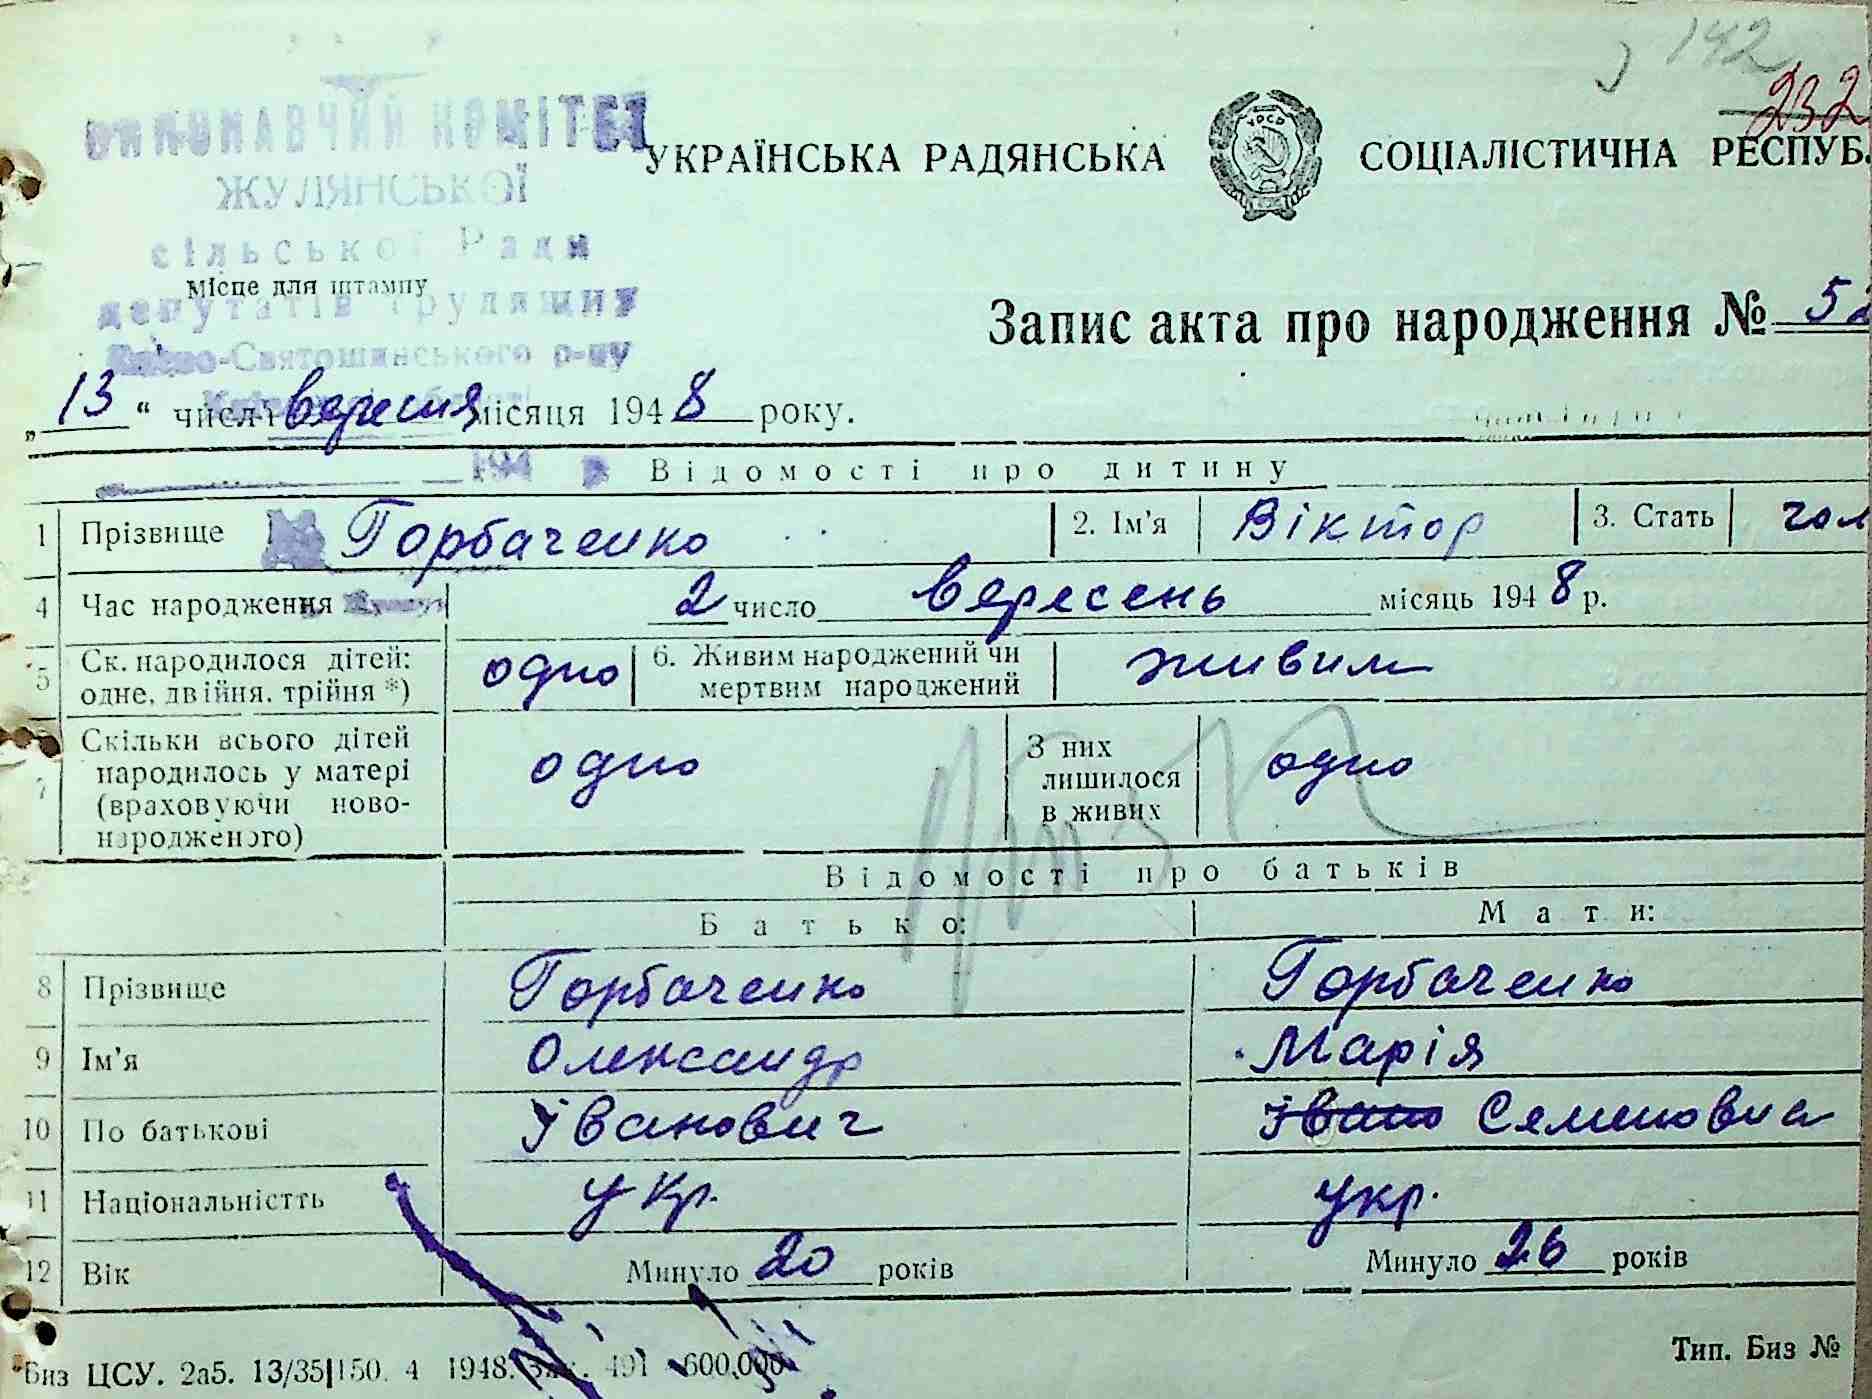 142
232
ВИКОНАВЧИЙ КОМІТЕТ
ЖУЛЯНСЬКОЇ
сільської Ради
Місце для штампу
депутатів трудящих
Києво-Святошинського р-ну
УКРАЇНСЬКА РАДЯНСЬКА
УРСР
СОЦІАЛІСТИЧНА РЕСПУБ.
Запис акта про народження № 52
„13“ числа вересня місяця 1948 року.
194 р
Відомості про дитину
1 Прізвище Горбаченко 2. Ім'я Віктор 3. Стать чол
4 Час народження 2 число вересень місяць 1948 р.
5 Ск. народилося дітей: одне, двійня, трійня *) одно 6. Живим народжений чи мертвим народжений живим
7 Скільки всього дітей народилось у матері (враховуючи новонародженого) одно З них лишилося в живих одно
Відомості про батьків
Батько: Мати:
8 Прізвище Горбаченко Горбаченко
9 Ім'я Олександр Марія
10 По батькові Іванович Івано Семеновна
11 Національністть укр. укр.
12 Вік Минуло 20 років Минуло 26 років
Биз ЦСУ. 2а5. 13/35|150. 4 1948. Зак. 491 600,000
Тип. Биз №